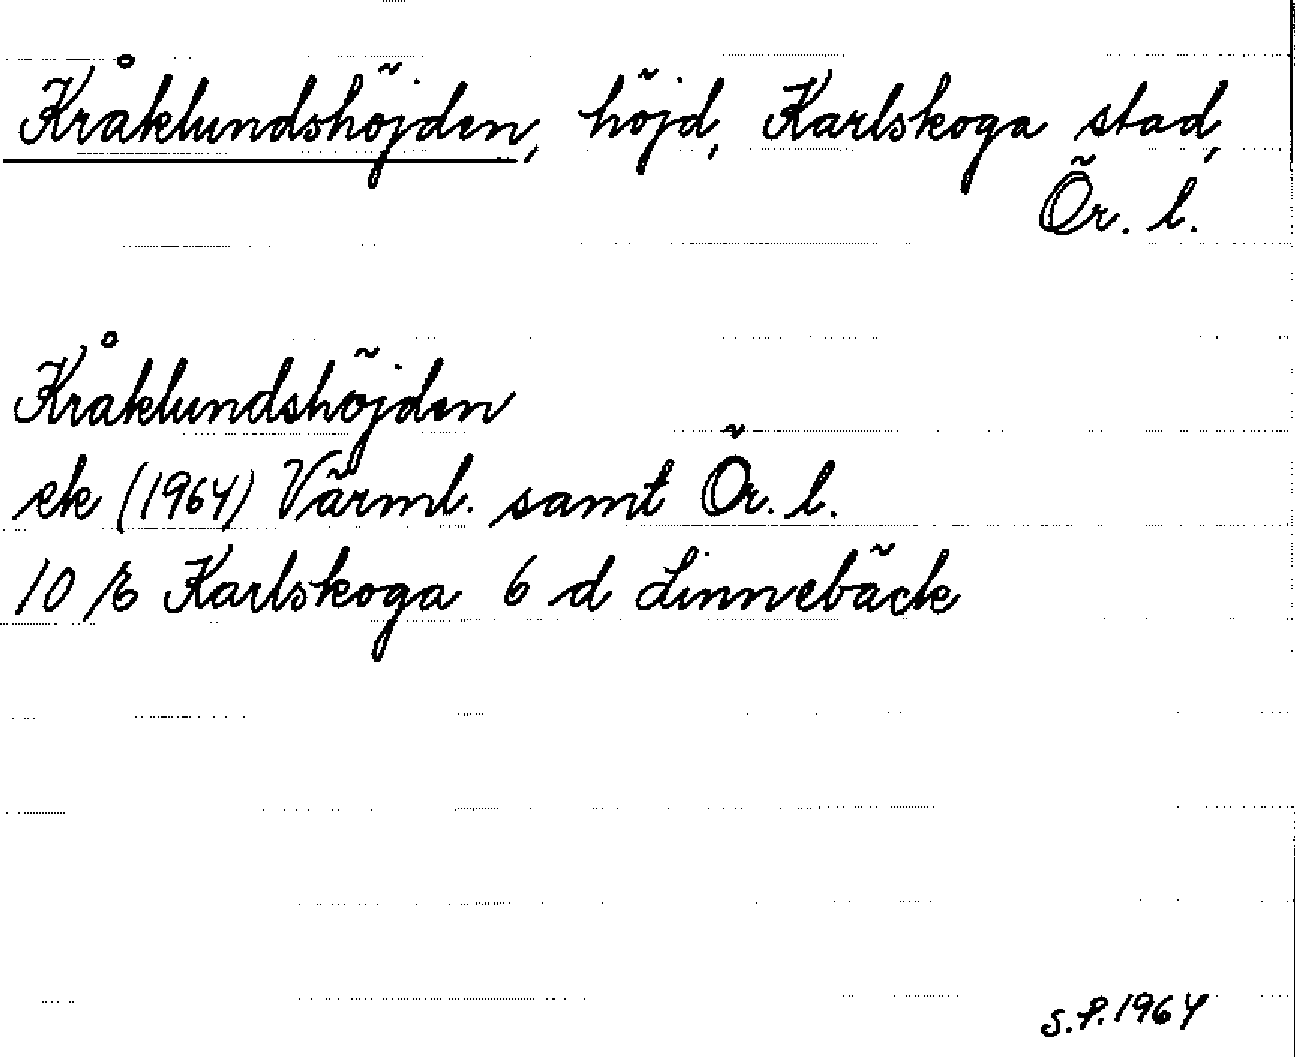 Kråklundshöjden, höjd, Karlskoga stad,
Ör. l.
Kråklundshöjden
ek (1964) Värml. samt Ör. l.
10 E Karlskoga 6 d Linnebäck
S.P. 1964